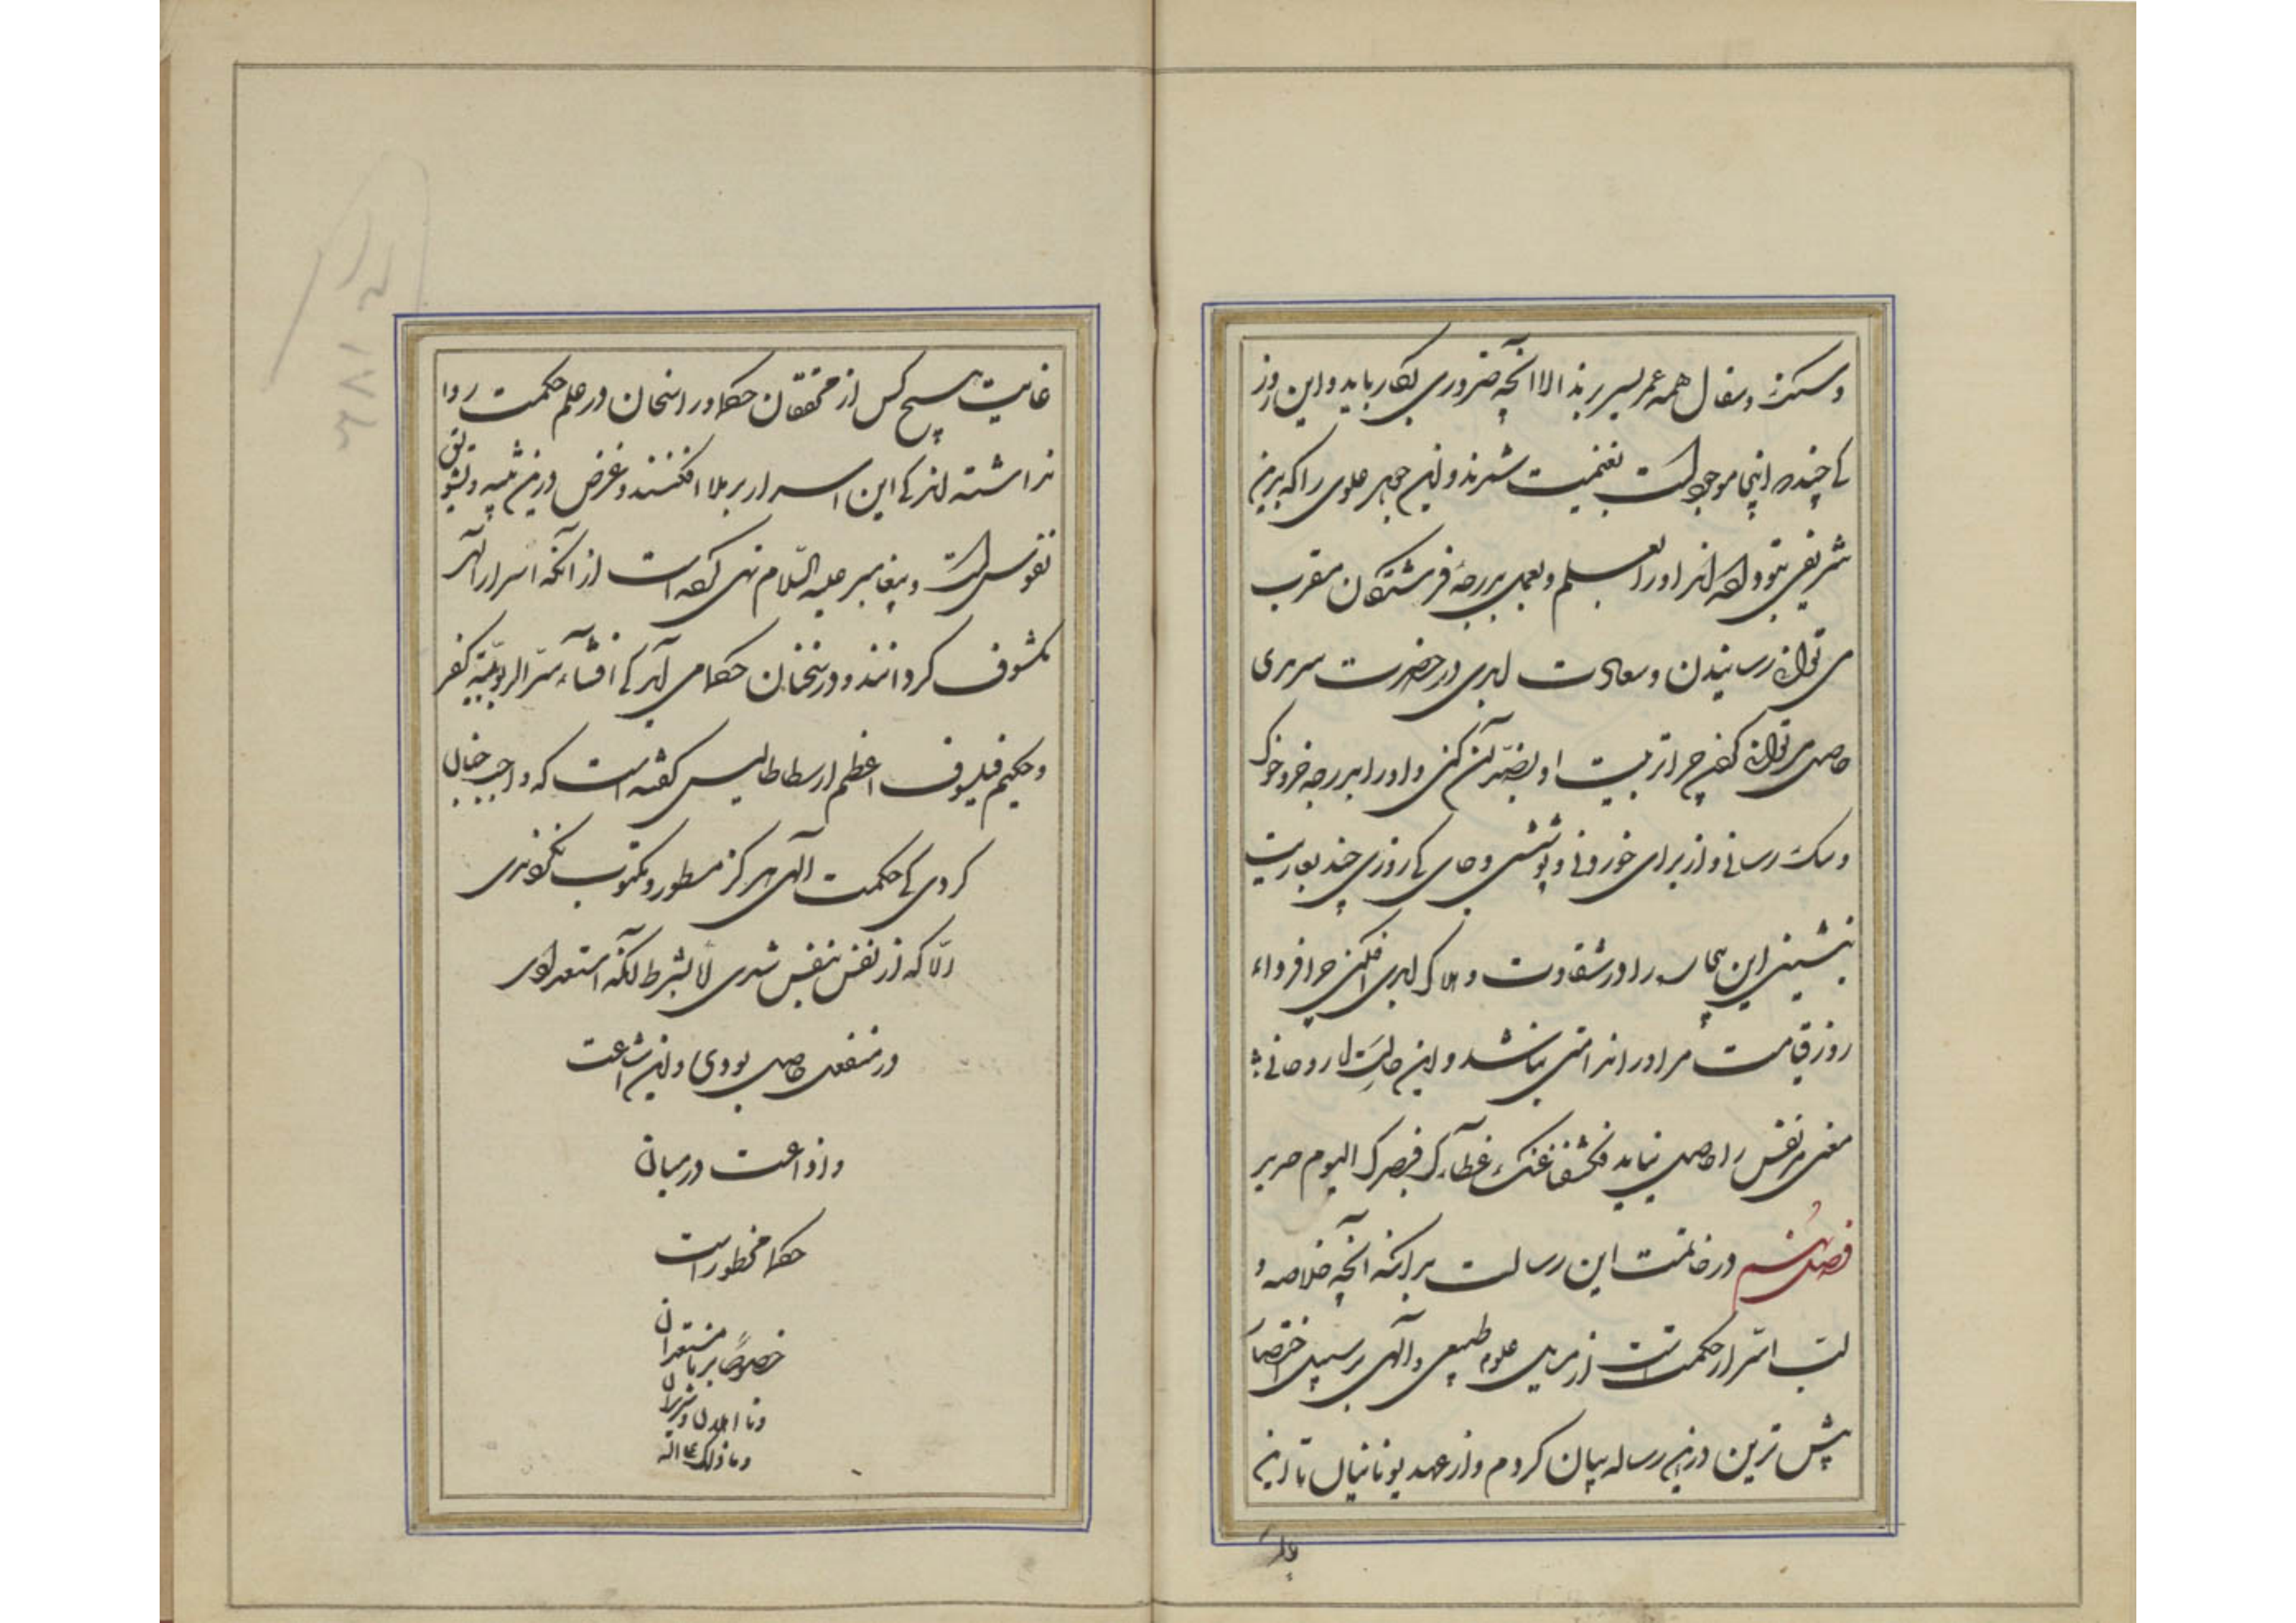 و سگ و سفال همه عمر بسر برند الا آنچه ضروری بکار باید و این روز
کی چند در اینجا موجود است بغنیمت شمرند و این جوهر علوی را که بدین
شریفی بتو داده‌اند او را بعلم و بعمل بدرجهٔ فرشتگان مقرب
می توان رسانیدن و سعادت ابدی در حضرت سرمدی
حاصل می توان کردن چرا تربیت او بضد آن کنی و او را بدرجه خر و خوک
و سگ رسانی و از برای خوردنی و پوششی و جای کی روزی چند بعاریت
بنشینی این بیچاره را در شقاوت و هلاک ابدی افکنی چرا فرداء
روز قیامت مر او را ندامتی نباشد و این حالت روحانی
معنی مر نفس را حاصل نیاید فکشفنا عنک غطآءک فبصرک الیوم حدید
فصل نهم در خاتمت این رسالت بدانکه آنچه خلاصه و
لب اسرار حکمت است از مدخل علوم طبیعی و آلهی بر سبیل اختصار
پیش ترین درین رساله بیان کردم و از عهد یونانیان تا این
غایت هیچ کس از محققان حکما و راسخان در علم حکمت روا
نداشته‌اند کی این اسرار بر ملا افکنند و غرض درین تنبیه و تشویق
نفوس است و پیغامبر علیه السّلام نهی کرده است از آنکه اسرار الهی
مکشوف گردانند و در سخنان حکما می آید کی افشآء سرّ الربوبیّة کفر
و حکیم فیلسوف اعظم ارسطاطالیس گفته است که واجب چنان
کردی کی حکمت الهی هرگز مسطور و مکتوب نکردندی
الّا که از نفس بنفس شدی لا بشرط آنکه استعدادی
در منفعل حاصل بودی و این اشاعت
و اذاعت در میان
حکما محظور است
خصوصاً بر نا مستعدان
و نا اهلان و شریران
وما ذلک علی الله